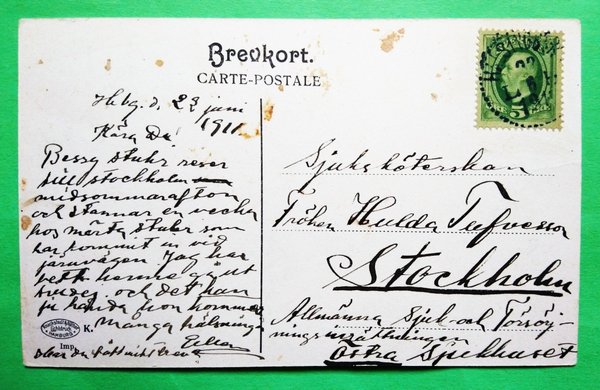 Brevkort.
CARTE-POSTALE
Hbg. d. 23 juni
1911.
Kära Du!
Bessy Stuhr reser
till Stockholm
midsommarafton
och stannar en vecka
hos Märta Stuhr som
har kommit in vid
järnvägen Jag har
henne
och det kan
ju hända hon kommer
Många hälsningar
Ellen
Sjuksköterskan
Fröken Hulda Tufvesson
Stockholm
Allmänna Sjuk- och Försörj-
ningsinrättningen
Östra Sjukhuset
5
K.
Imp.
HAMBURG